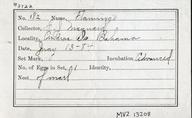 No. 1/2 Name, Flamingo
Collector, Maynard
Locality, Andros Is. Bahama
Date,
Set Mark, Incubation Advanced
No. of Eggs in Set, 1 Identity,
Nest of mud
MVZ 13208